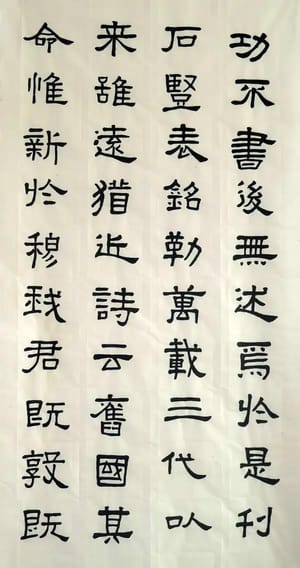 功不書後無述焉於是刊
石豎表銘勒萬載三代以
来雖遠猶近詩云舊國其
命惟新於穆我君既敦既